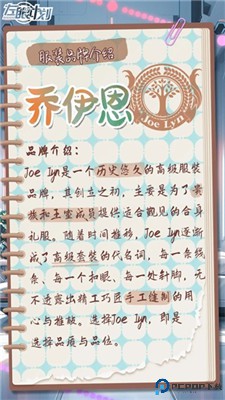 服装品牌介绍
乔伊恩
Joe Lyn
品牌介绍:
Joe Lyn是一个历史悠久的高级服装
品牌,其创立之初,主要是为了贵
族和王室成员提供适合觐见的合身
礼服。随着时间推移,Joe Lyn逐渐
成了高级套装的代名词,每一条线
条、每一个和眼、每一处针脚,无
不透露出精工巧匠手工缝制的用
心与推敲。选择Joe Lyn,即是
选择品质与品位。